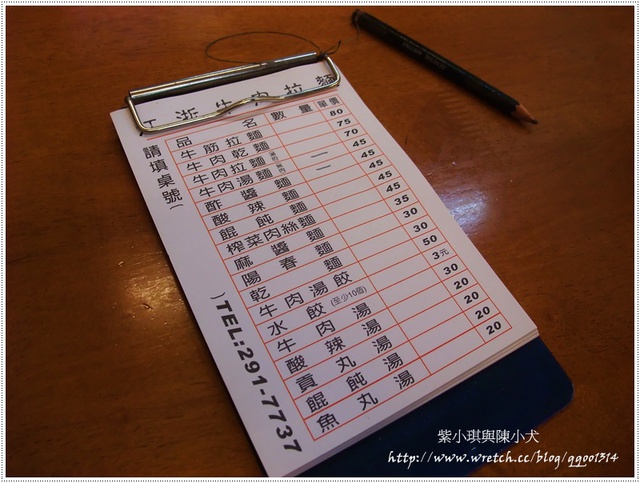 江浙牛肉拉麵
請填桌號( )TEL:291-7737
品名 數量 單價
牛筋拉麵 80
牛肉乾麵 75
牛肉拉麵 70
牛肉湯麵 45
酢醬麵 45
酸辣麵 45
餛飩麵 45
榨菜肉絲麵 45
麻醬麵 35
陽春麵 30
乾麵 30
牛肉湯餃 50
水餃(至少10個) 3元
牛肉湯 30
酸辣湯 20
貢丸湯 20
餛飩湯 20
魚丸湯 20
紫小琪與陳小犬
http://www.wretch.cc/blog/qgoo1314